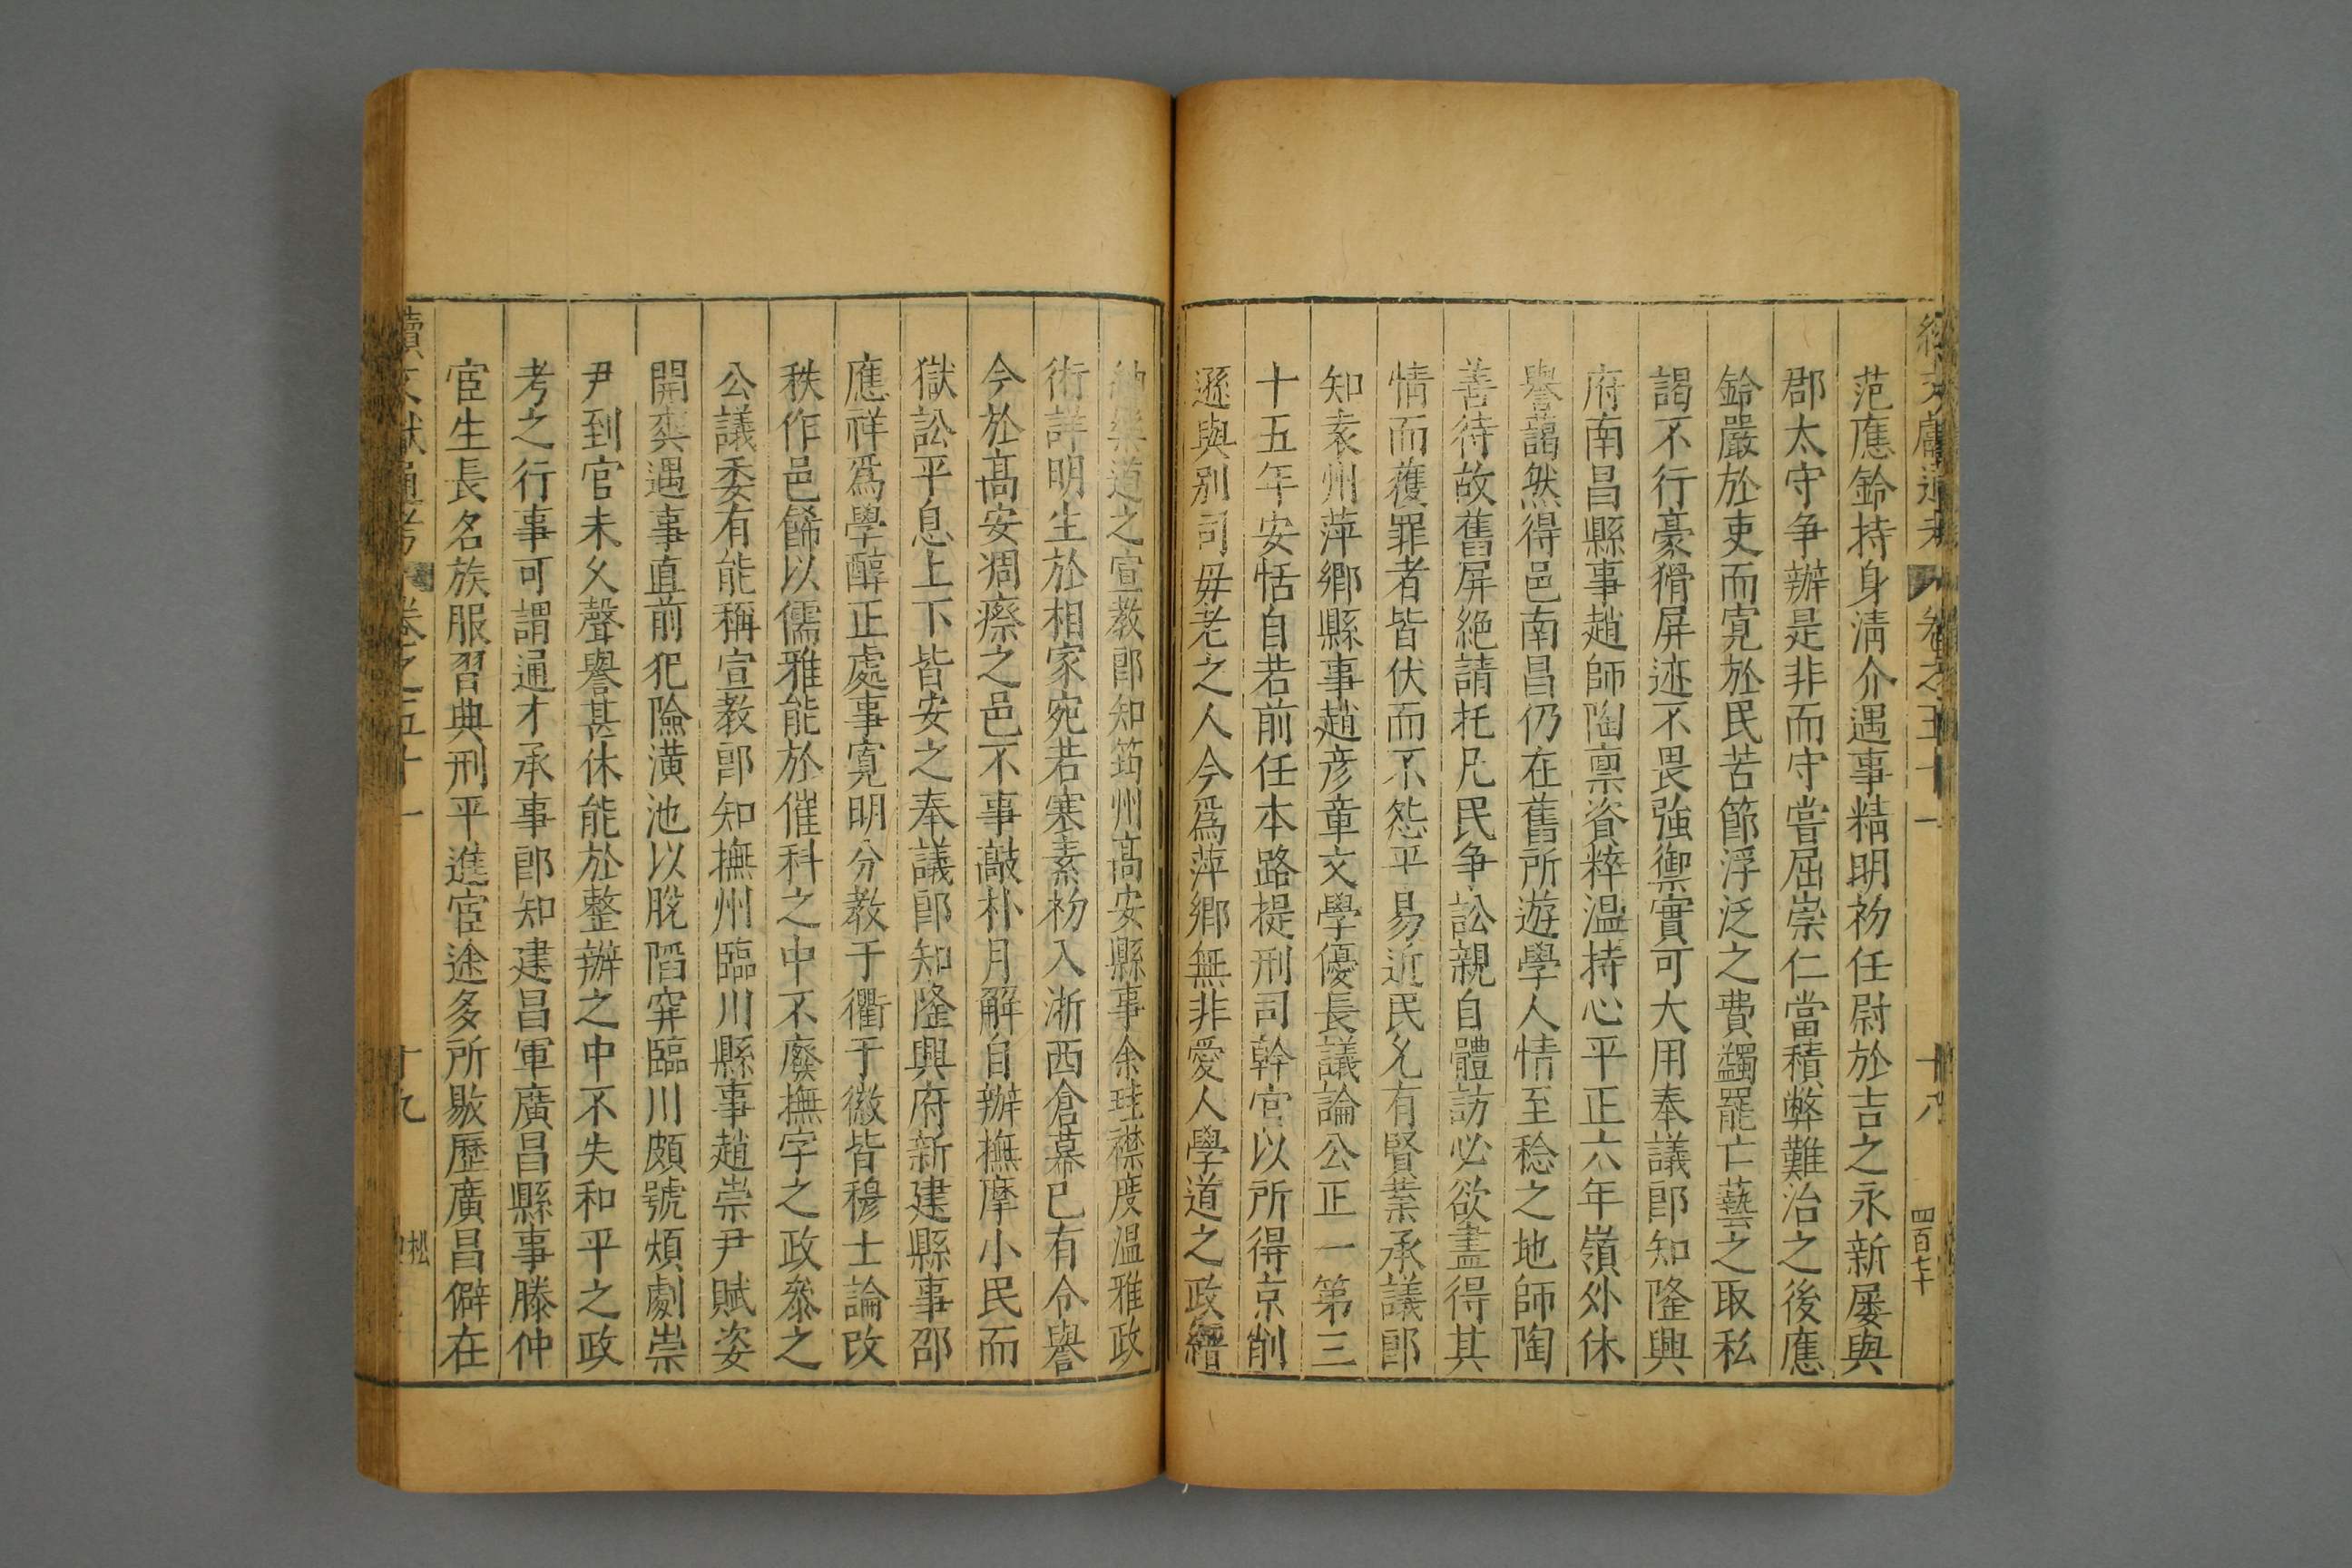 續文獻通考 卷之五十一 十八 四百七十
范應鈴持身清介遇事精明初任尉於吉之永新屡與
郡太守争辦是非而守嘗屈崇仁當積弊難治之後應
鈴嚴於吏而寛於民苦節浮泛之費蠲罷亡藝之取私
謁不行豪猾屏迹不畏強禦實可大用奉議郎知隆興
府南昌縣事趙師陶禀資粹温持心平正六年嶺外休
譽藹然得邑南昌仍在舊所遊學人情至稔之地師陶
善待故舊屏絶請托凡民争訟親自體訪必欲盡得其
情而蔑罪者皆伏而不怨平易近民允有賢業承議郎
知袁州萍鄉縣事趙彦童文學優長議論公正一第三
十五年安恬自若前任本路提刑司幹官以所得京削
遜與别司毋老之人今爲萍鄉無非愛人學道之政縉
紳樂道之宣教郎知筠州髙安縣事余珪襟度温雅政
術詳明生於相家宛若寒素初入浙西倉幕已有令譽
今於髙安凋瘵之邑不事敲朴月解自辦撫摩小民而
獄訟平息上下皆安之奉議郎知隆興府新建縣事邵
應祥爲學醇正處事寛明分教于衢于徽皆穆士論改
秩作邑餙以儒雅能於催科之中不廢撫字之政叅之
公議委有能稱宣教郎知撫州臨川縣事趙崇尹賦姿
開爽遇事直前犯險潢池以脫陷穽臨川頗號煩劇崇
尹到官未久聲譽甚休能於整辦之中不失和平之政
考之行事可謂通才承事郎知建昌軍廣昌縣事滕仲
宦生長名族服習典刑平進宦途多所敭歷廣昌僻在
續文獻通考 卷之五十一 十九 松